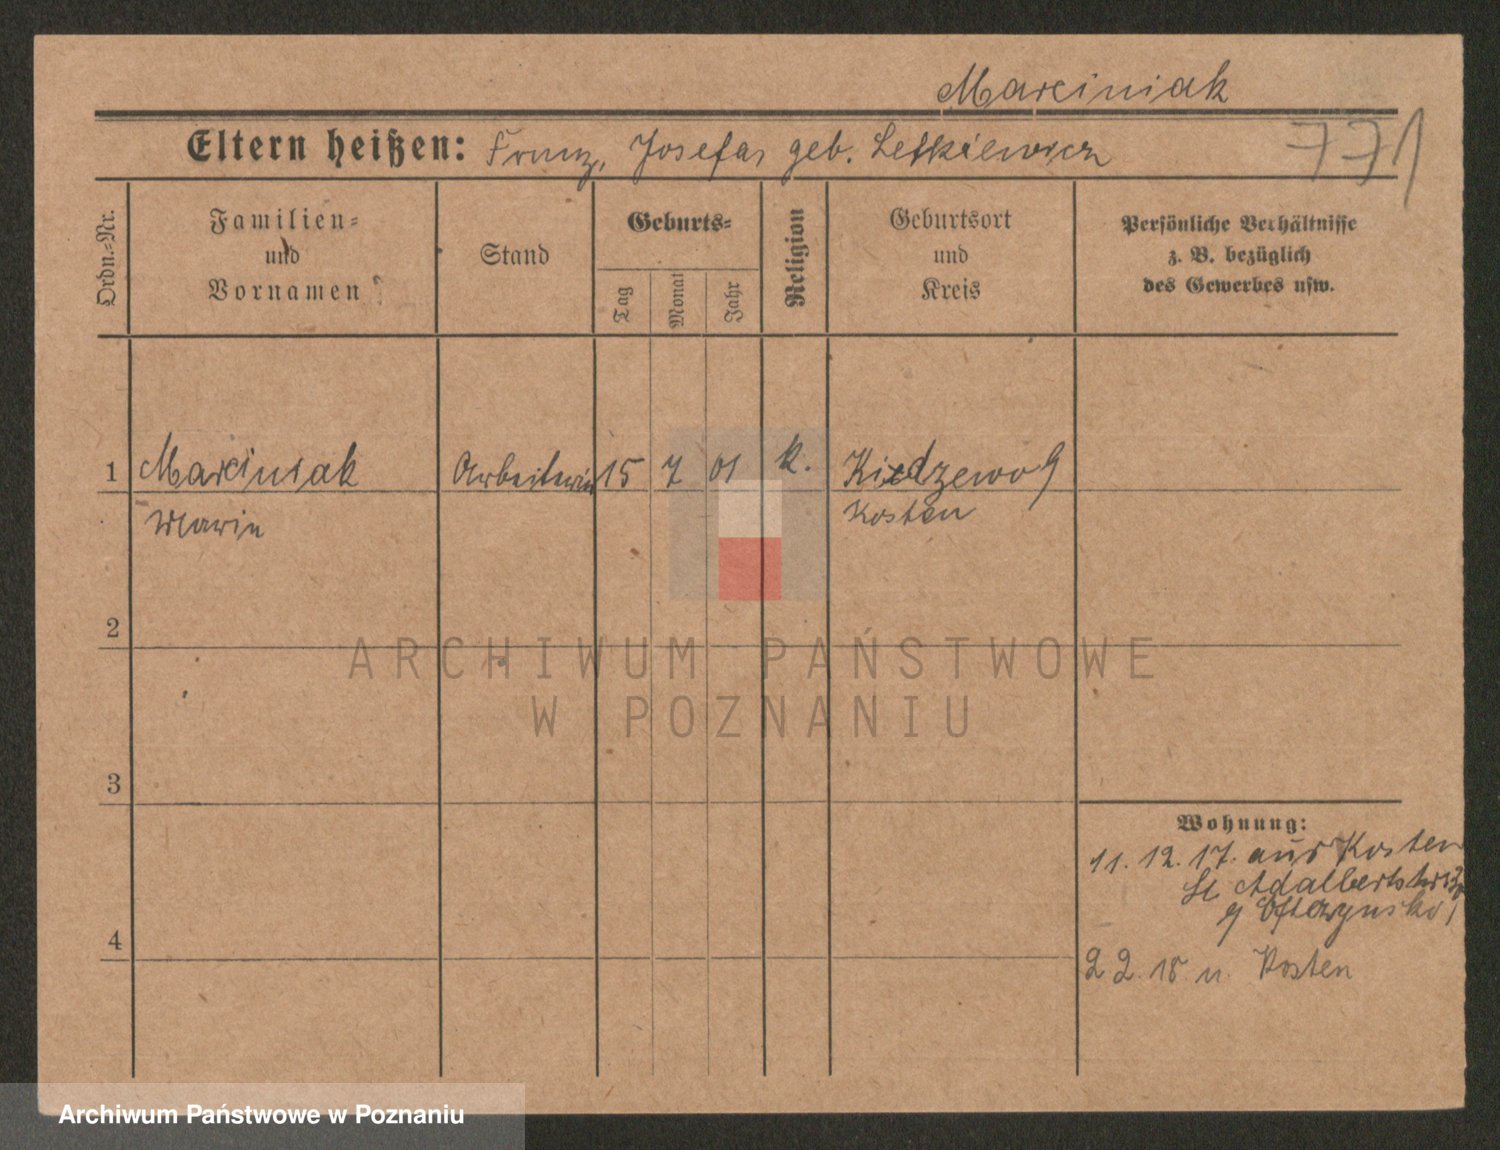 Marciniak
Eltern heißen: Franz, Josefa, geb. Letkiewicz
771
Ordn.-Nr.
Familien-
und
Vornamen
Stand
Geburts-
Tag
Monat
Jahr
Religion
Geburtsort
und
Kreis
Persönliche Verhältnisse
z. B. bezüglich
des Gewerbes usw.
1 Marciniak Arbeiterin 15 7 01 k. Kiedzewo
Maria Kosten
2
3
4
Wohnung:
11. 12. 17. aus Kosten
St Adalbertstr
2 2. 18. n. Kosten
ARCHIWUM PAŃSTWOWE
W POZNANIU
Archiwum Państwowe w Poznaniu